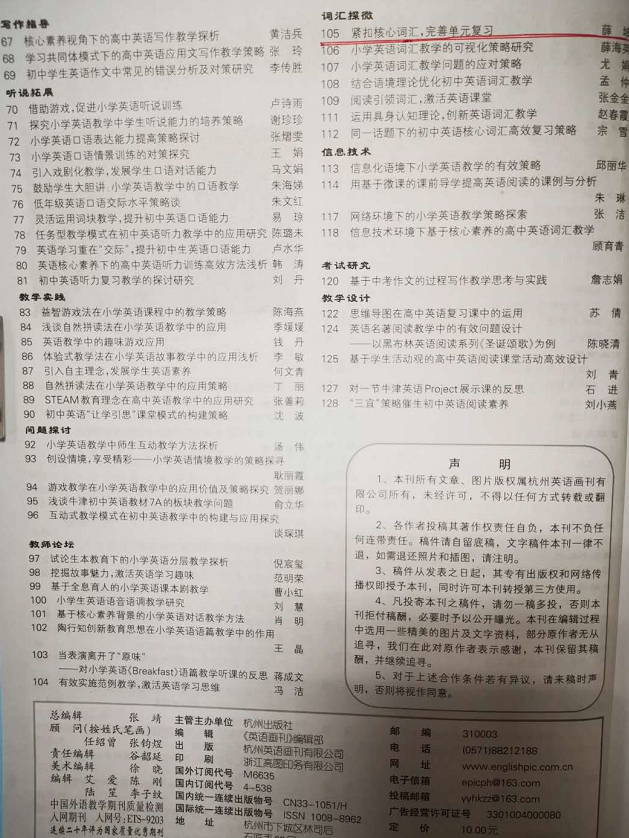 写作指导
67 核心素养视角下的高中英语写作教学探析 黄洁兵
68 学习共同体模式下的高中英语应用文写作教学策略 张 玲
69 初中学生英语作文中常见的错误分析及对策研究 李传胜
听说拓展
70 借助游戏,促进小学英语听说训练 卢诗雨
71 探究小学英语教学中学生听说能力的培养策略 谢珍珍
72 小学英语口语表达能力提高策略探讨 张熠雯
73 小学英语口语情景训练的对策探究 王 娟
74 引入戏剧化教学,发展学生口语对话能力 马文娟
75 鼓励学生大胆讲:小学英语教学中的口语教学 朱海娣
76 低年级英语口语交际水平策略谈 朱文红
77 灵活运用词块教学,提升初中英语口语能力 易 琼
78 任务型教学模式在初中英语听力教学中的应用研究 陈璐未
79 英语学习重在“交际”,提升初中生英语口语能力 卢水华
80 英语核心素养下的高中英语听力训练高效方法浅析 韩 涛
81 初中英语听力复习教学的探讨研究 刘 丹
教学实践
83 益智游戏法在小学英语课程中的教学策略 陈海燕
84 浅谈自然拼读法在小学英语教学中的应用 李媛媛
85 英语教学中的趣味游戏应用 钱 丹
86 体验式教学法在小学英语故事教学中的应用浅析 李 敏
87 引入自主理念,发展学生英语素养 何文青
88 自然拼读法在小学英语教学中的应用策略 丁 丽
89 STEAM教育理念在高中英语教学中的应用研究 张善莉
90 初中英语“让学引思”课堂模式的构建策略 沈 波
问题探讨
92 小学英语教学中师生互动教学方法探析 汤 伟
93 创设情境,享受精彩——小学英语情境教学的策略探寻
耿丽霞
94 游戏教学在小学英语教学中的应用价值及策略探究 贺丽娜
95 浅谈牛津初中英语教材7A的板块教学问题 俞立华
96 互动式教学模式在初中英语教学中的构建与应用探究
谈琛琪
教师论坛
97 试论生本教育下的小学英语分层教学探析 倪宸玺
98 挖掘故事魅力,激活英语学习趣味 范明荣
99 基于全息育人的小学英语课本剧教学 曹小红
100 小学生英语语音语调教学研究 刘 慧
101 基于核心素养背景的小学英语对话教学方法 肖 明
102 陶行知创新教育思想在小学英语语篇教学中的作用
王 晶
103 当表演离开了“原味”
——对小学英语《Breakfast》语篇教学听课的反思 蒋成文
104 有效实施范例教学,激活英语学习思维 冯 洁
词汇探微
105 紧扣核心词汇,完善单元复习 薛
106 小学英语词汇教学的可视化策略研究 薛海英
107 小学英语词汇教学问题的应对策略 尤 娟
108 结合语境理论优化初中英语词汇教学 孟 仲
109 阅读引领词汇,激活英语课堂 张金金
111 运用具身认知理论,创新英语词汇教学 赵春霞
112 同一话题下的初中英语核心词汇高效复习策略 宗 雪
信息技术
113 信息化语境下小学英语教学的有效策略 邱丽华
114 用基于微课的课前导学提高英语阅读的课例与分析
朱 琳
117 网络环境下的小学英语教学策略探索 张 洁
118 信息技术环境下基于核心素养的高中英语词汇教学
顾育青
考试研究
120 基于中考作文的过程写作教学思考与实践 詹志娟
教学设计
122 思维导图在高中英语复习课中的运用 苏 倩
124 英语名著阅读教学中的有效问题设计
——以黑布林英语阅读系列《圣诞颂歌》为例 陈晓清
125 基于学生活动观的高中英语阅读课堂活动高效设计
刘 青
127 对一节牛津英语Project展示课的反思 石 进
128 “三宜”策略催生初中英语阅读素养 刘小燕
声 明
1、本刊所有文章、图片版权属杭州英语画刊有
限公司所有，未经许可，不得以任何方式转载或翻
印。
2、各作者投稿其著作权责任自负，本刊不负任
何连带责任。稿件请自留底稿，文字稿件本刊一律不
退，如需退还照片和插图，请注明。
3、稿件从发表之日起，其专有出版权和网络传
播权即授予本刊，同时许可本刊转授第三方使用。
4、凡投寄本刊之稿件，请勿一稿多投，否则本
刊拒付稿酬，必要时予以公开曝光。本刊在编辑过程
中选用一些精美的图片及文字资料，部分原作者无从
追寻，我们在此对原作者表示感谢，本刊保留其稿
酬，并继续追寻。
5、对于上述合作条件若有异议，请来稿时声
明，否则将视作同意。
总编辑 张 靖
顾 问(按姓氏笔画)
任绍曾 张钧煜
责任编辑 谷韶延
美术编辑 徐 晓
编辑 艾 爱 陈 刚
陆 笙 李子纹
中国外语教学期刊质量检测
入网期刊 入网号:ETS-9203
连续二十年评为国家质量优胜期刊
主管主办单位 杭州出版社
编 辑 《英语画刊》编辑部
出 版 杭州英语画刊有限公司
印 刷 浙江高图印务有限公司
国外订阅代号 M6635
国内订阅代号 4-538
国内统一连续出版物号 CN33-1051/H
国际统一连续出版物号 ISSN 1008-8962
地 址 杭州市下城区林司后
邮 编 310003
电 话 (0571)88212188
网 址 www.englishpic.com.cn
电子信箱 epicph@163.com
投稿邮箱 yvhkzz@163.com
广告经营许可证号 3301004000080
定 价 10.00元